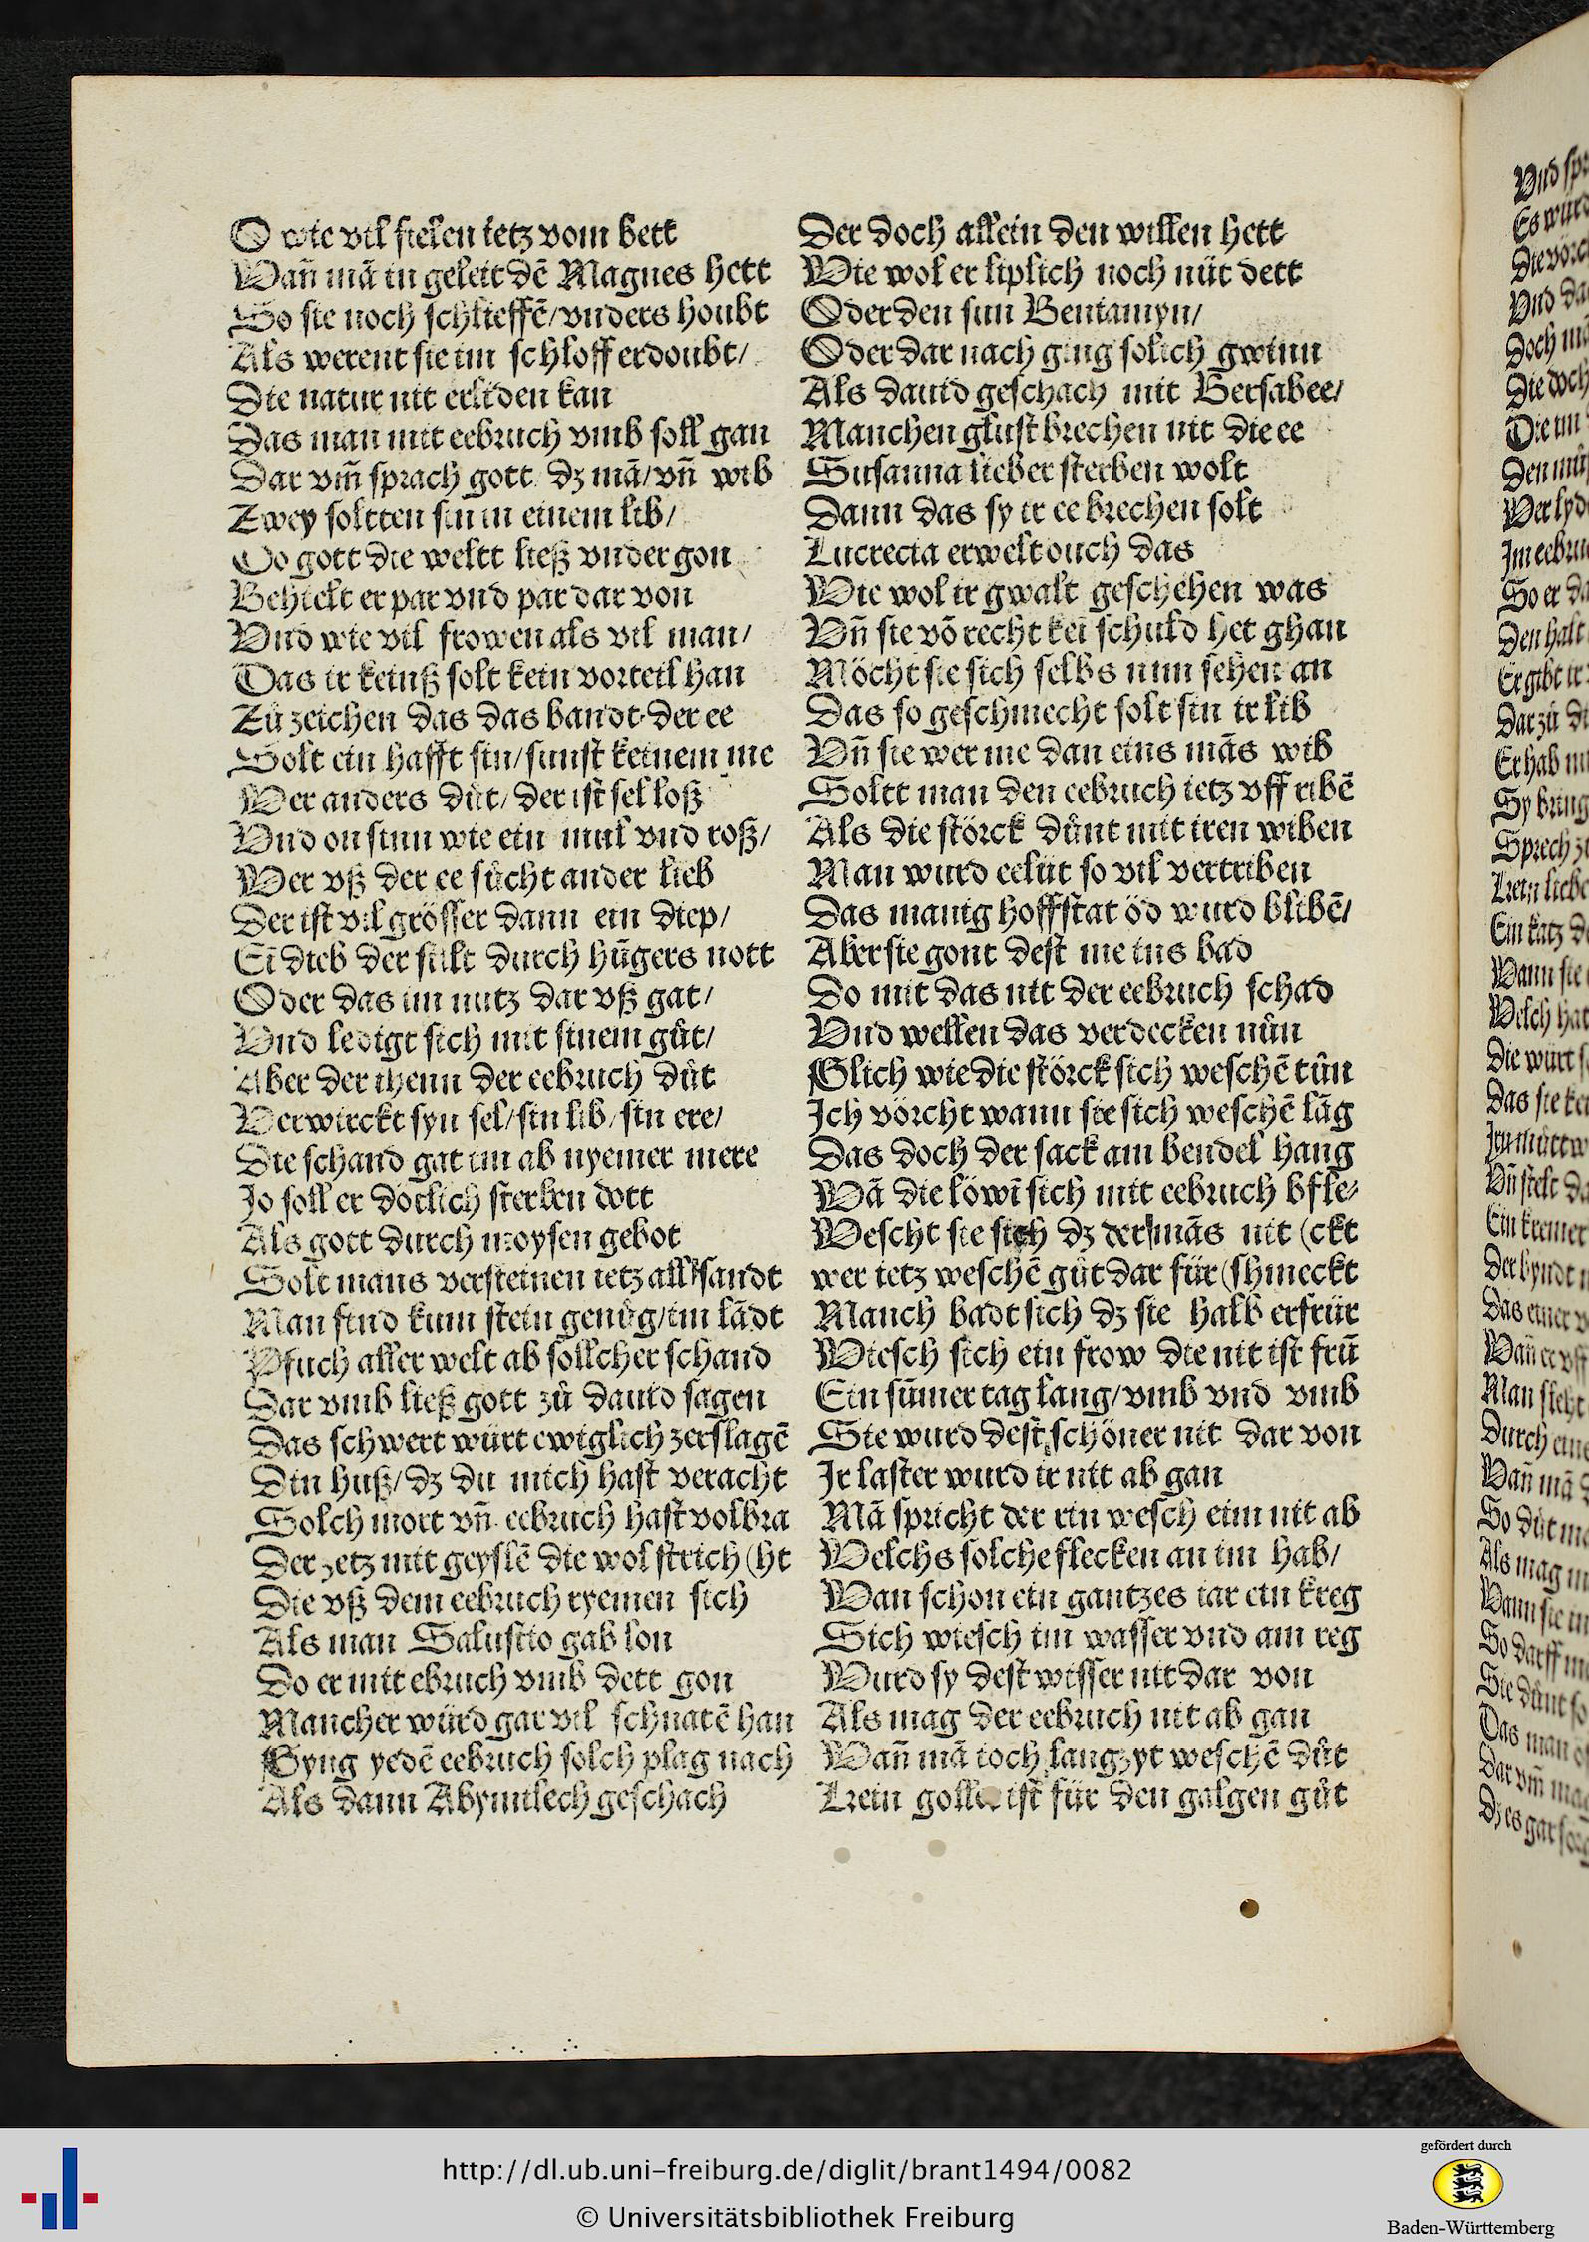 O wie vil fielen ietz vom bett
Wañ mā in geleit dē Magnes hett
So sie noch schlieffē/vnders houbt
Als werent sie im schloff erdoubt/
Die natur nit erliden kan
Das man mit eebruch vmb soll gan
Dar vm̄ sprach gott dz mā/vn̄ wib
Zwey soltten sin in einem lib/
Do gott die weltt ließ vnder gon
Behielt er par vnd par dar von
Vnd wie vil frowen als vil man/
Das ir keinß solt kein vorteil han
Zů zeichen das das bandt der ee
Solt ein hafft sin/sunst keinem me
Wer anders důt/der ist sel loß
Vnd on sinn wie ein mul vnd roß/
Wer vß der ee sůcht ander lieb
Der ist vil grösser dann ein diep/
Eī dieb der stilt durch hūgers nott
Oder das im nutz dar vß gat/
Vnd ledigt sich mit sinem gůt/
Aber der ihenn der eebruch důt
Verwirckt syn sel/sin lib/sin ere/
Die schand gat im ab nyemer mere
Jo soll er dötlich sterben dott
Als gott durch moysen gebot
Solt mans versteinen ietz all sandt
Man find kum stein genůg/im lādt
Pfuch aller welt ab söllcher schand
Dar vmb ließ gott zů dauid sagen
Das schwert würt ewiglich zerslagē
Din huß/dz du mich hast veracht
Solch mort vn̄ eebruch hast volbra
Der zetz mit geyslē die wol strich (ht
Die vß dem eebruch ryemen sich
Als man Salustio gab lon
Do er mitt ebruch vmb dett gon
Mancher würd gar vil schnatē han
Gyng yedē eebruch solch plag nach
Als dann Abymilech geschach
Der doch allein den willen hett
Wie wol er liplich noch nüt dett
Oder den sun Beniamyn/
Oder dar nach ging solich gwinn
Als dauid geschach mit Bersabee/
Manchen glust brechen nit die ee
Susanna lieber sterben wolt
Dann das sy ir ee brechen solt
Lucrecia erwelt ouch das
Wie wol ir gwalt geschehen was
Vn̄ sie vō recht keī schuld het ghan
Möcht sie sich selbs nun sehen an
Das so geschmecht solt sin ir lib
Vn̄ sie wer me dan eins māṣ wib
Soltt man den eebruch ietz vff ribē
Als die störck důnt mit iren wiben
Man wurd eelüt so vil vertriben
Das manig hoffstat öd wurd blibē/
Aber sie gont dest me ins bad
Do mit das nit der eebruch schad
Vnd wellen das verdecken nůn
Glich wie die störck sich weschē tůn
Ich vörcht wann sie sich weschē lāg
Das doch der sack am bendel hang
Wā die löwī sich mit eebruch bfle/
Wescht sie sich dz der mās nit (ckt
wer ietz weschē gůt dar für (shmeckt
Manch badt sich dz sie halb erfrür
Wiesch sich ein frow die nit ist frū
Ein sūmer tag lang/vmb vnd vmb
Sie wurd dest schöner nit dar von
Ir laster wurd ir nit ab gan
Mā spricht der rin wesch eim nit ab
Welchs solche flecken an im hab/
Wan schon ein gantzes iar ein kreg
Sich wiesch im wasser vnd am reg
Wurd sy dest wisser nit dar von
Als mag der eebruch nit ab gan
Wañ mā ioch lang zyt weschē důt
Kein goller ist für den galgen gůt
http://dl.ub.uni-freiburg.de/diglit/brant1494/0082
© Universitätsbibliothek Freiburg
gefördert durch
Baden-Württemberg